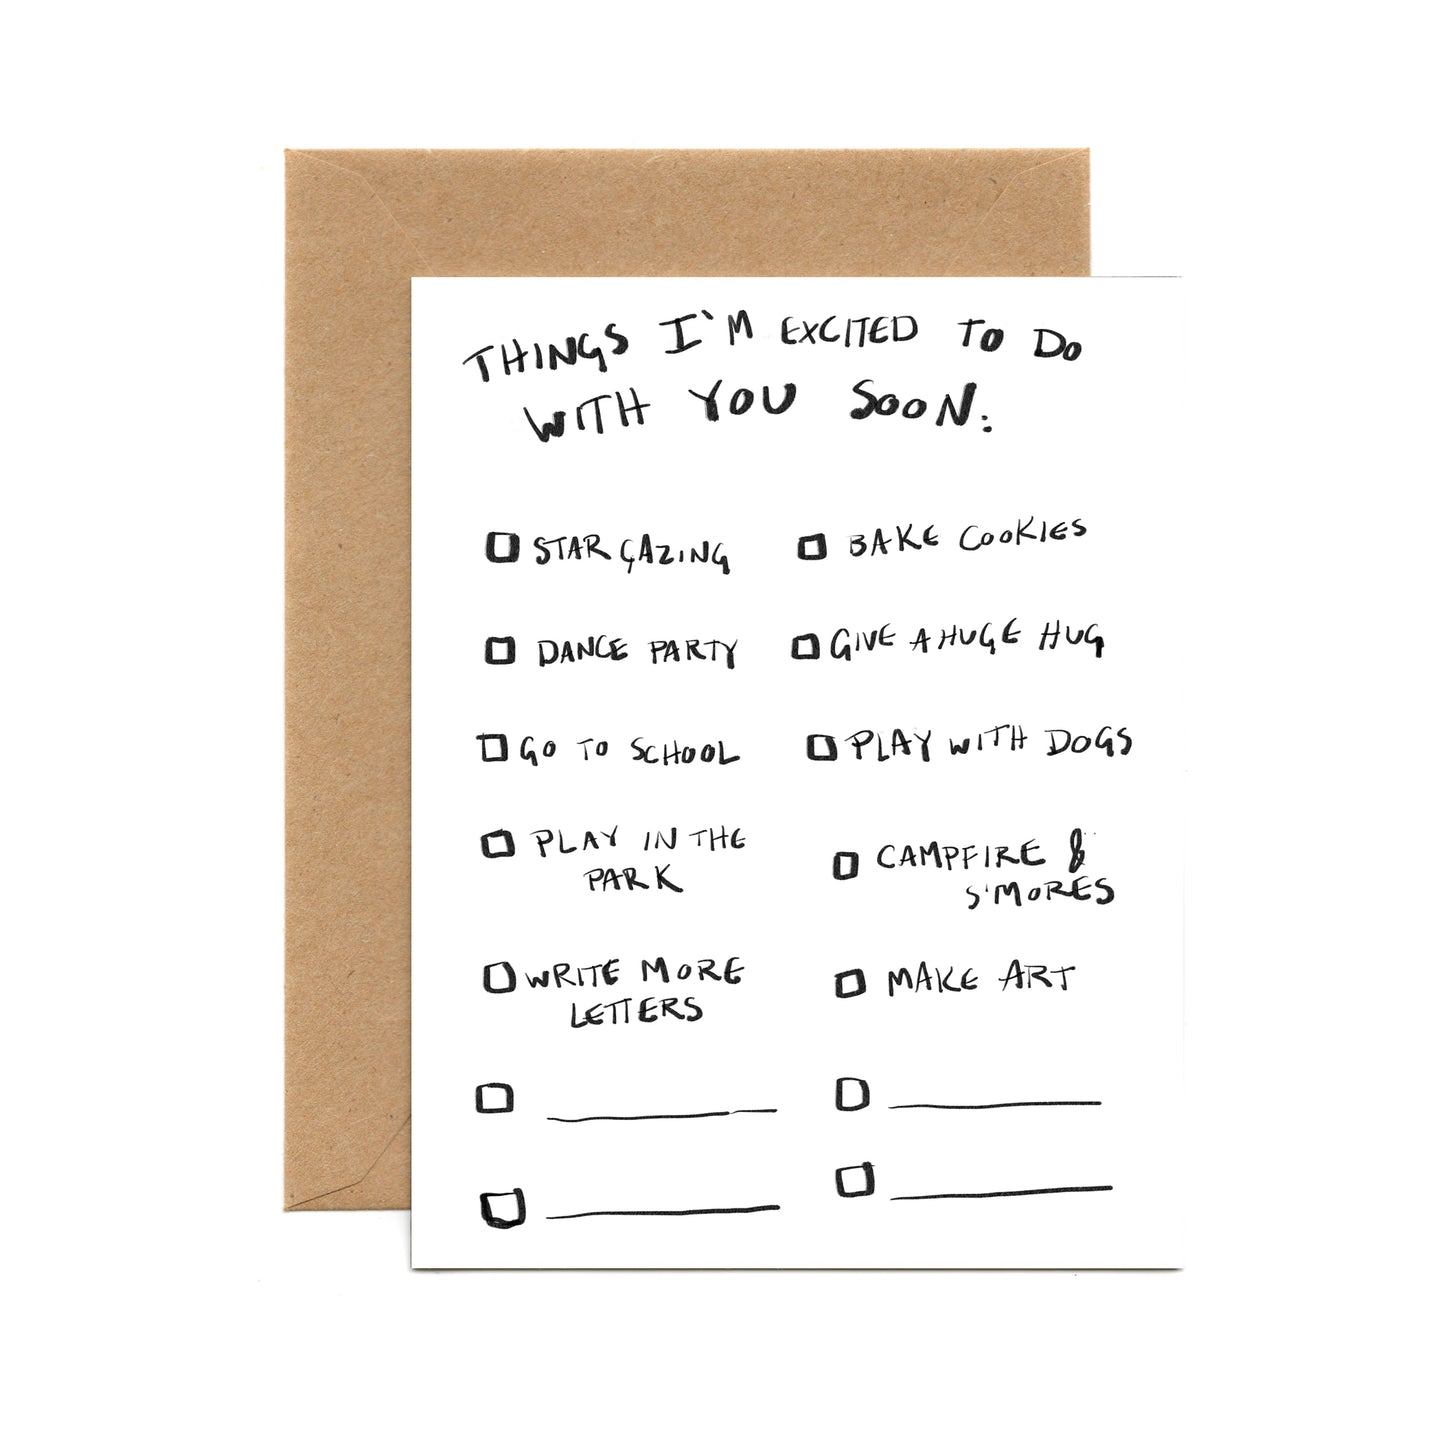 THINGS I'M EXCITED TO DO
WITH YOU SOON:
STAR GAZING
BAKE COOKIES
DANCE PARTY
GIVE A HUGE HUG
GO TO SCHOOL
PLAY WITH DOGS
PLAY IN THE
PARK
CAMPFIRE &
S'MORES
WRITE MORE
LETTERS
MAKE ART